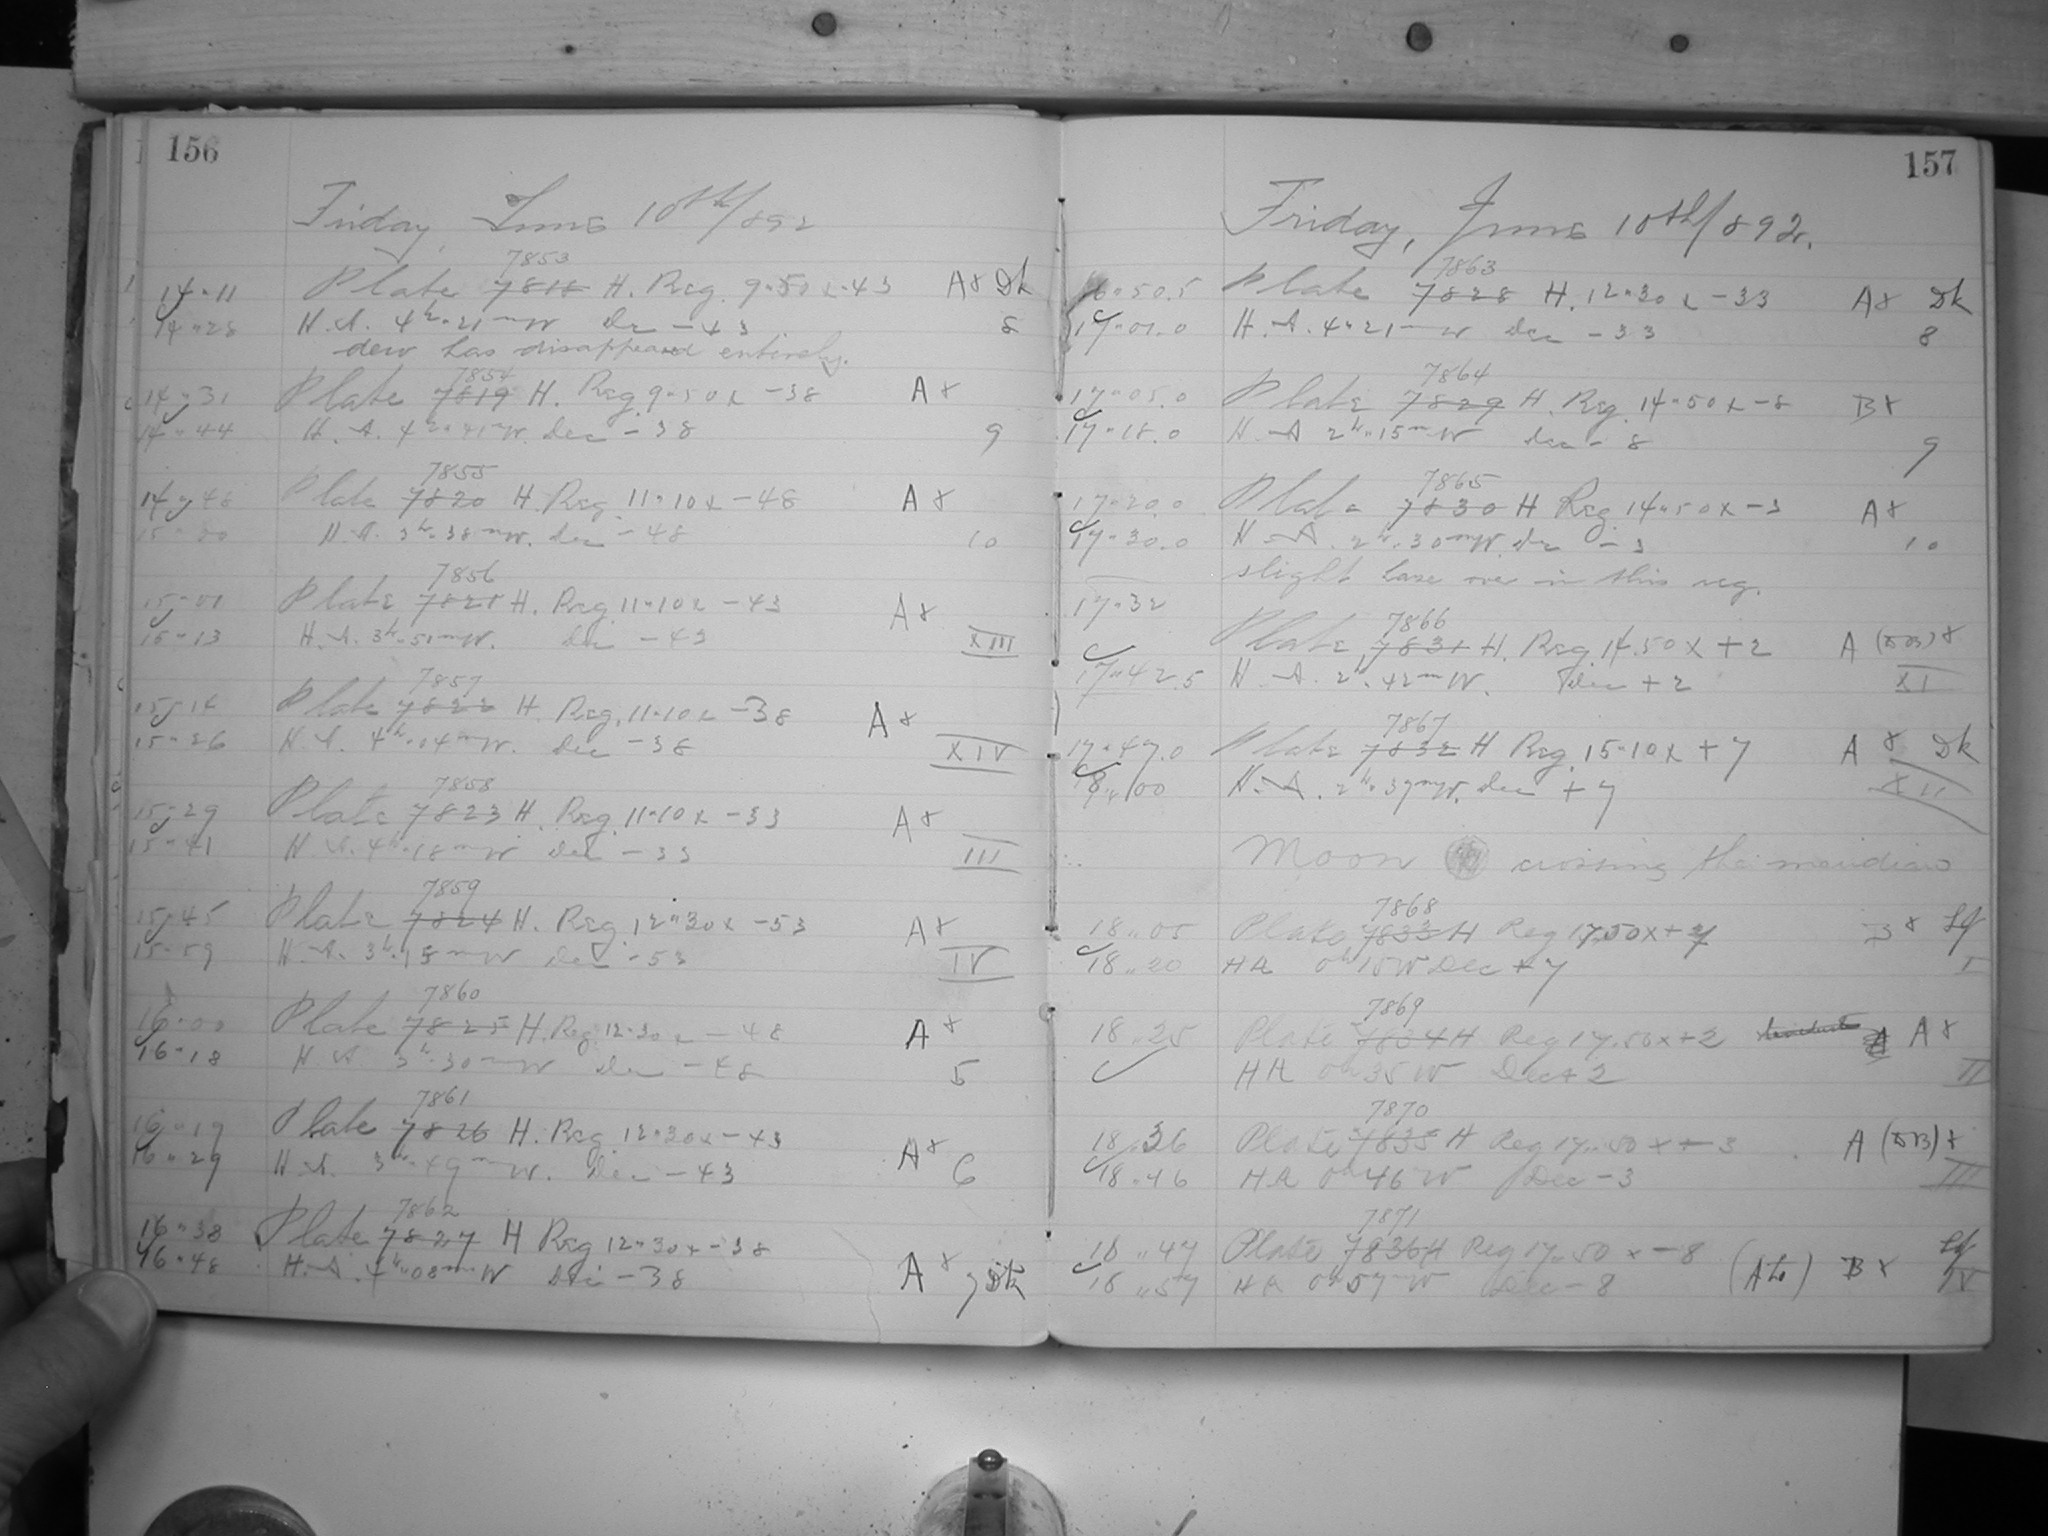 156
Friday, June 10th 1892
7853
14"11 Plate 7818 H. Reg. 9"50 x -43 A8 Dk
14"28 H.A. 4h"21m W Dec -43 8
dew has disappeared entirely.
7854
14"31 Plate 7819 H. Reg. 9"50 x -38 A8
14"44 H.A. 4h"41m W. Dec -38 9
7855
14"48 Plate 7820 H. Reg. 11"10 x -48 A8
15"00 H.A. 3h"38m W. Dec -48 10
7856
15"01 Plate 7821 H. Reg. 11"10 x -43 A8
15"13 H.A. 3h"51m W. Dec -43 XIII
7857
15"14 Plate 7822 H. Reg. 11"10 x -38 A8
15"26 H.A. 4h"04m W. Dec -38 XIV
7858
15"29 Plate 7823 H. Reg. 11"10 x -33 A8
15"41 H.A. 4h"18m W Dec -33 III
7859
15"45 Plate 7824 H. Reg. 12"30 x -53 A8
15"59 H.A. 3h"15m W Dec -53 IV
7860
16"00 Plate 7825 H. Reg. 12"30 x -48 A8
16"18 H.A. 3h"30m W Dec -48 5
7861
16"19 Plate 7826 H. Reg. 12"30 x -43 A8
16"29 H.A. 3h"49m W. Dec -43 6
7862
16"38 Plate 7827 H Reg 12"30 x -38
16"48 H.A. 4h"08m W Dec -38 A8 7 Dk
157
Friday, June 10th 1892.
7863
16"50.5 Plate 7828 H. 12"30 x -33 A8 Dk
17"01.0 H.A. 4"21m W Dec -33 8
7864
17"05.0 Plate 7829 H. Reg. 14"50 x -8 B8
17"18.0 H.A 2h"15m W Dec -8 9
7865
17"20.0 Plate 7830 H Reg. 14"50 x -3 A8
17"30.0 H.A. 2h"30m W. Dec -3 10
slight haze over in this reg.
17"32
7866
Plate 7831 H. Reg. 14"50 x +2 A 8
17"42.5 H.A. 2h"42m W. Dec +2 XI
7867
17"47.0 Plate 7832 H Reg. 15"10 x +7 A 8 Dk
18"00 H.A. 2h"37m W. Dec +7 XII
Moon crossing the meridian
7868
18"05 Plate 7833 H Reg 17"50 x +7 B8
18"20 HA 0h 15 W Dec +7 I
7869
18"25 Plate 7834 H Reg 17"50 x +2 A8
HA 0h 35 W Dec +2 II
7870
18"36 Plate 7835 H Reg 17"50 x -3 A 8
18"46 HA 0h 46 W Dec -3 III
7871
18"47 Plate 7836 H Reg 17"50 x -8 B8
18"57 HA 0h 57m W Dec -8 IV